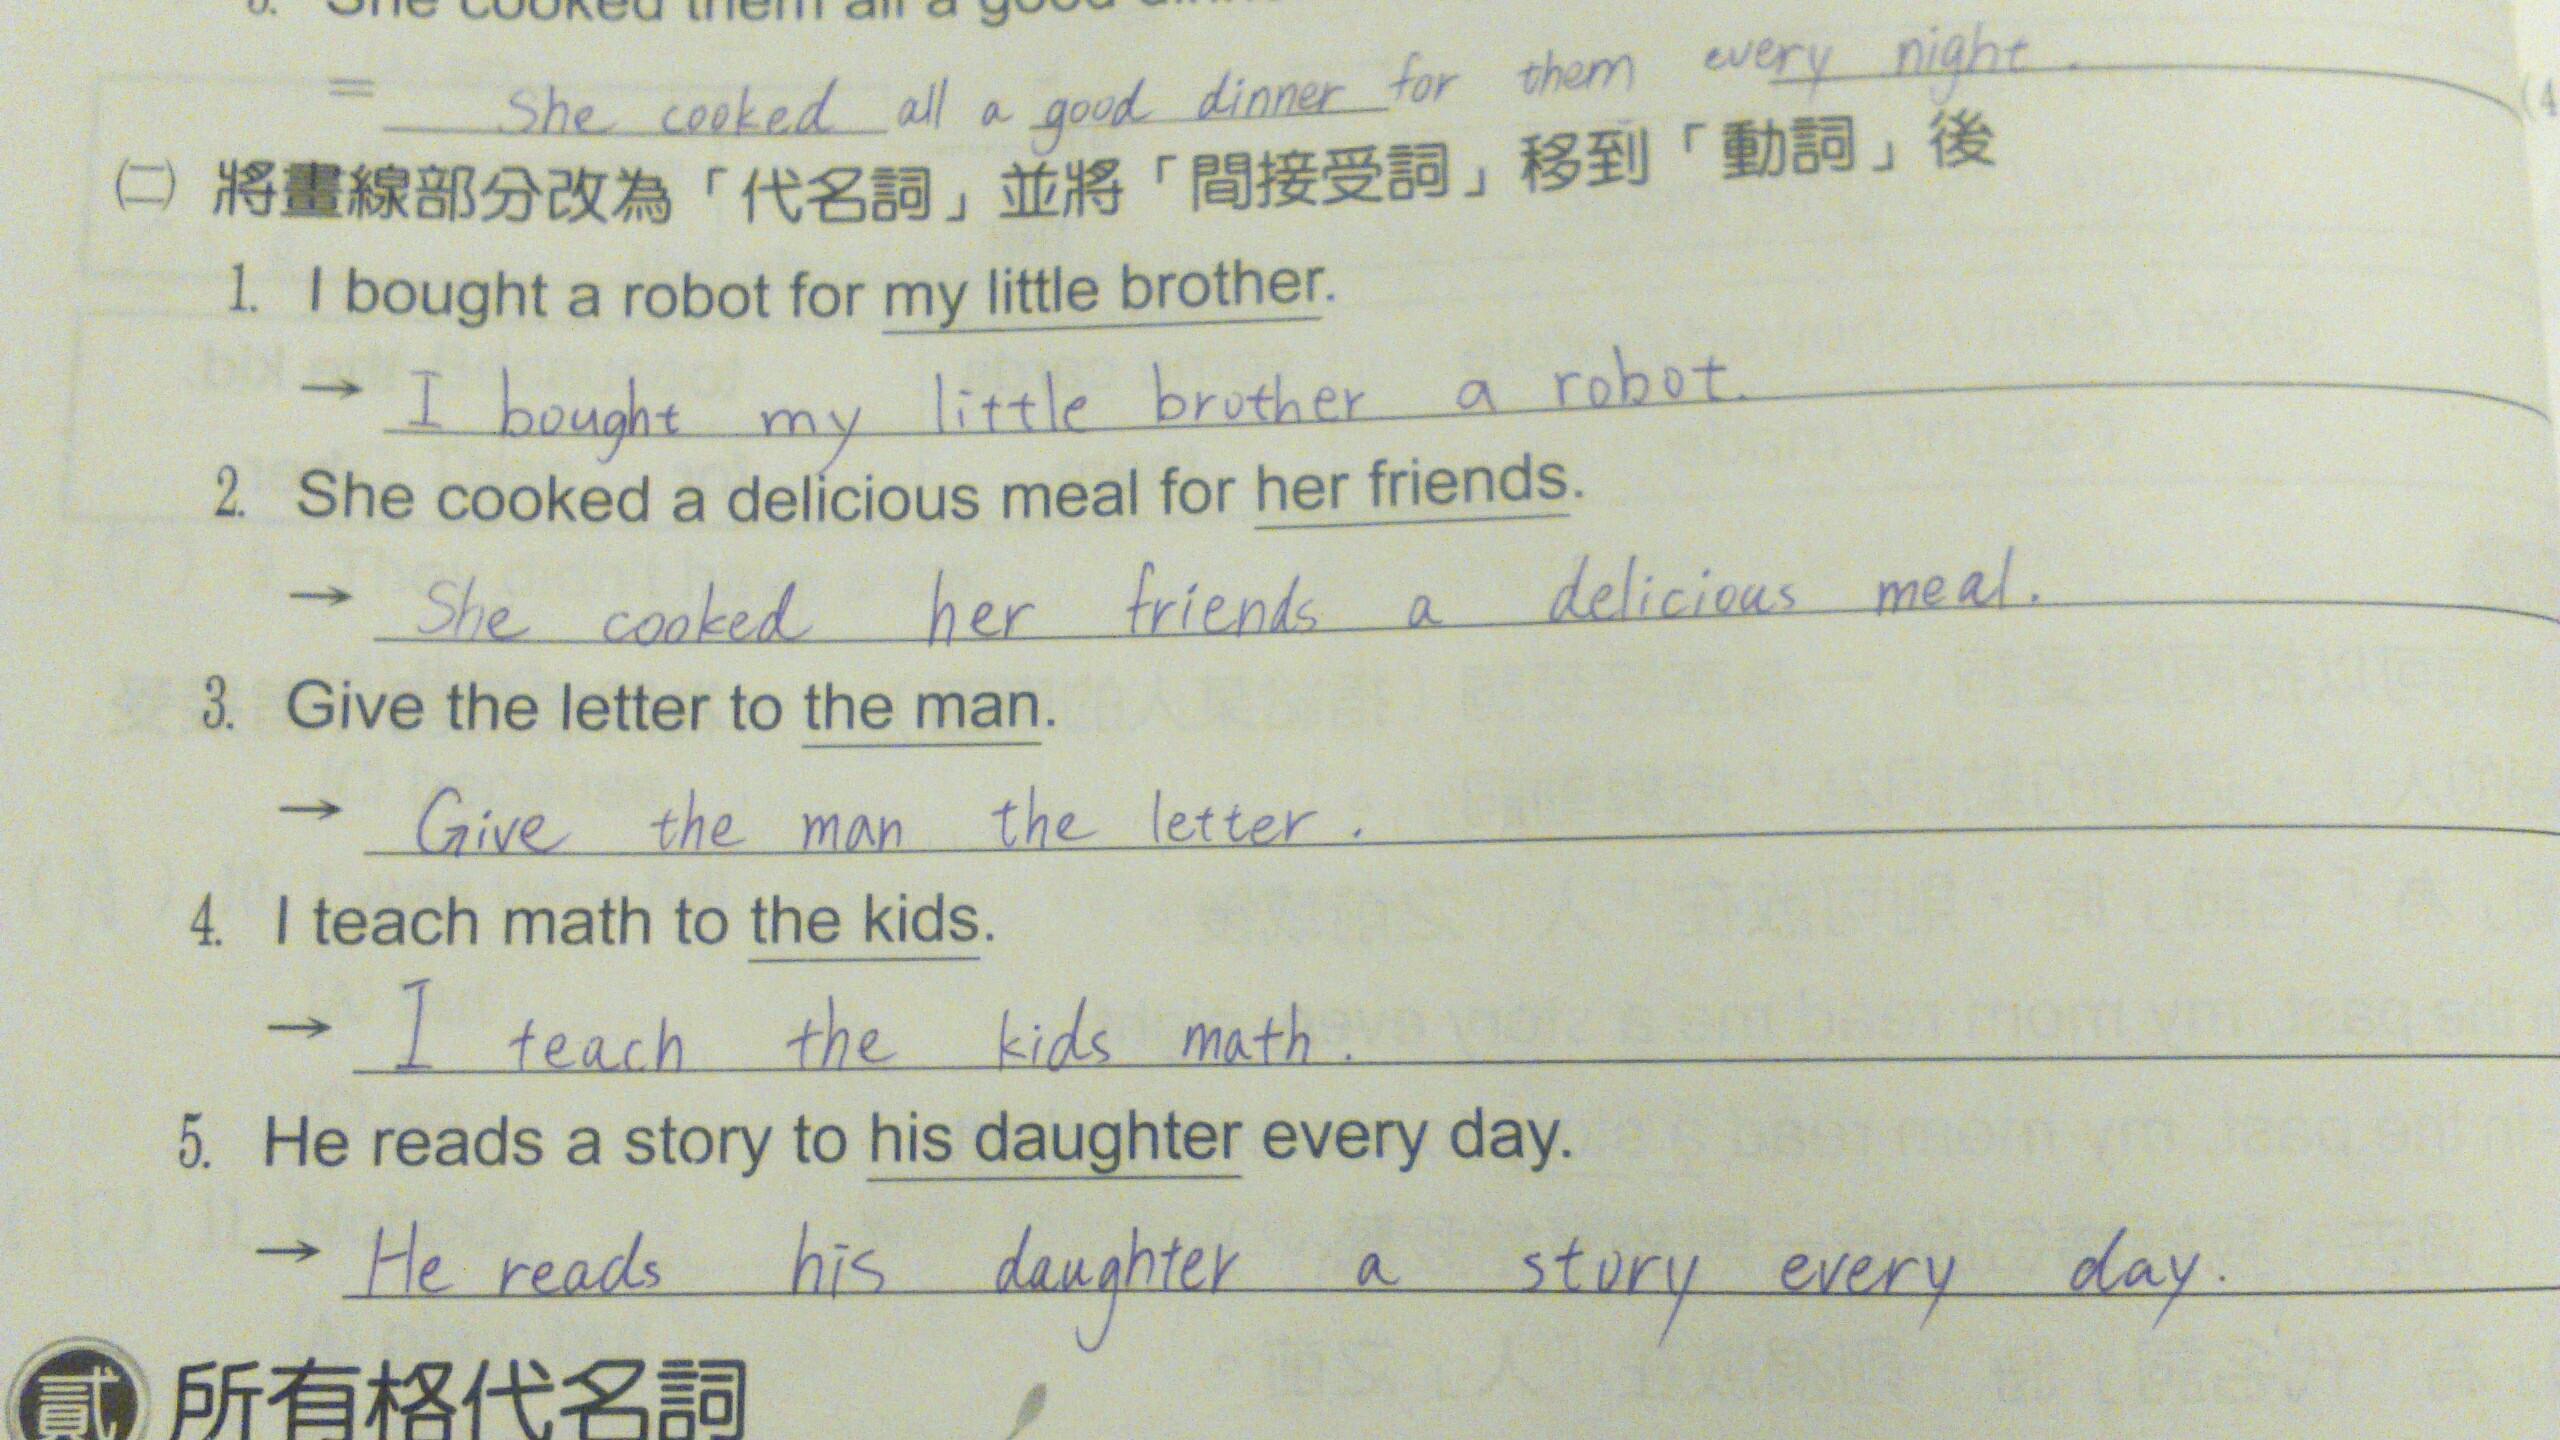 She cooked them all a good
= She cooked all a good dinner for them every night.
㈡ 將畫線部分改為「代名詞」並將「間接受詞」移到「動詞」後
1. I bought a robot for my little brother.
→ I bought my little brother a robot.
2. She cooked a delicious meal for her friends.
→ She cooked her friends a delicious meal.
3. Give the letter to the man.
→ Give the man the letter.
4. I teach math to the kids.
→ I teach the kids math.
5. He reads a story to his daughter every day.
→ He reads his daughter a story every day.
貳 所有格代名詞